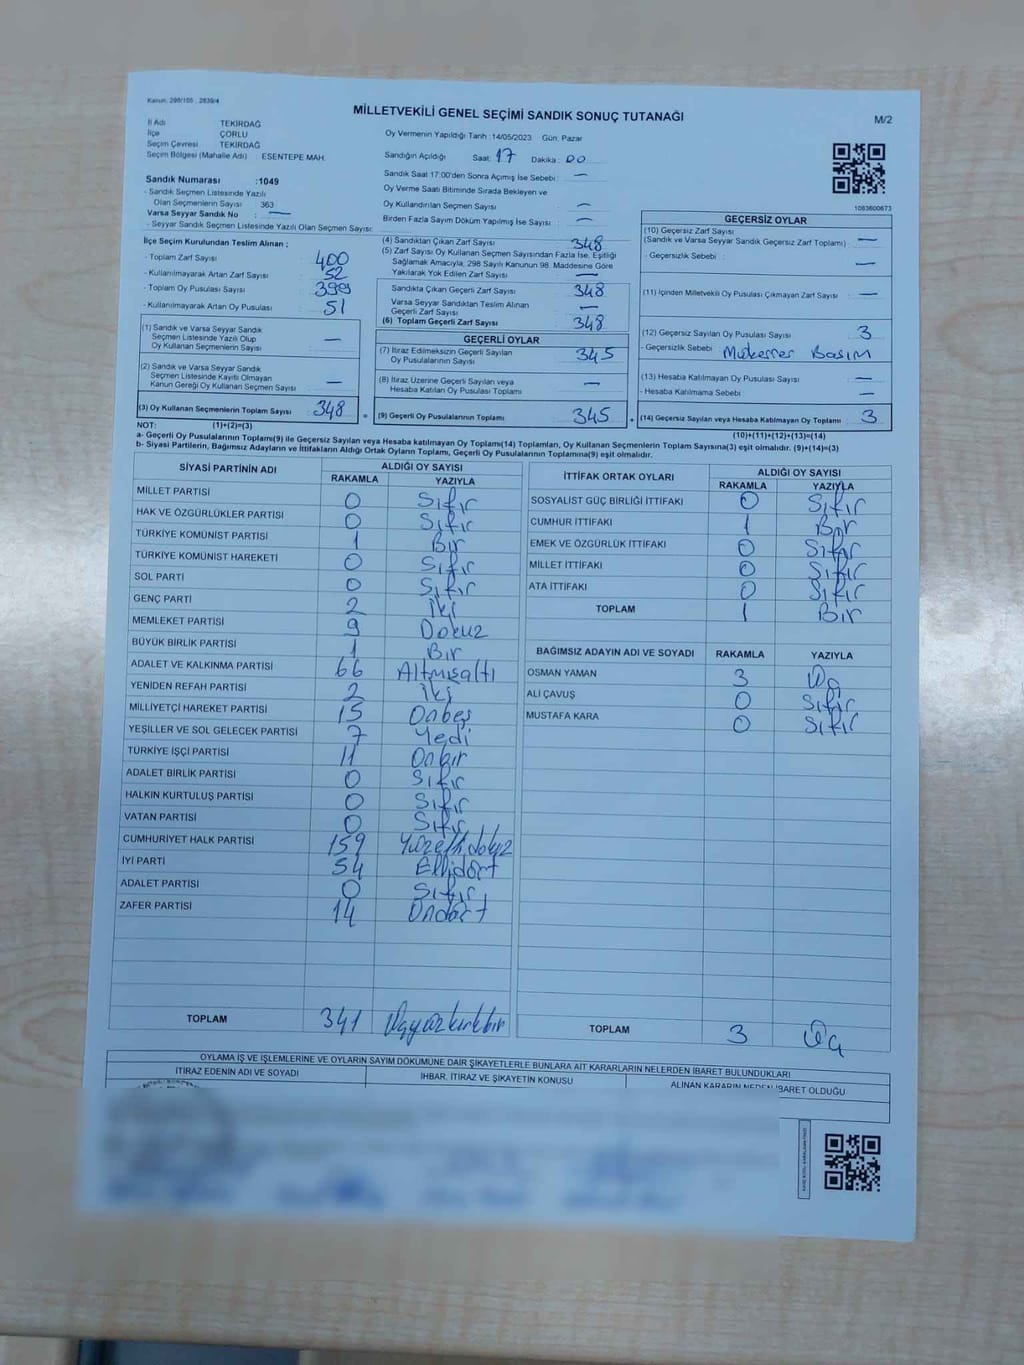 Kanun: 298/105 , 2839/4
MİLLETVEKİLİ GENEL SEÇİMİ SANDIK SONUÇ TUTANAĞI
M/2
İl Adı TEKİRDAĞ
İlçe ÇORLU
Seçim Çevresi TEKİRDAĞ
Seçim Bölgesi (Mahalle Adı) ESENTEPE MAH.
Sandık Numarası :1049
- Sandık Seçmen Listesinde Yazılı
Olan Seçmenlerin Sayısı 363
Varsa Seyyar Sandık No : —
- Seyyar Sandık Seçmen Listesinde Yazılı Olan Seçmen Sayısı:
İlçe Seçim Kurulundan Teslim Alınan ;
- Toplam Zarf Sayısı : 400
- Kullanılmayarak Artan Zarf Sayısı : 52
- Toplam Oy Pusulası Sayısı : 399
- Kullanılmayarak Artan Oy Pusulası : 51
(1) Sandık ve Varsa Seyyar Sandık
Seçmen Listesinde Yazılı Olup
Oy Kullanan Seçmenlerin Sayısı : —
(2) Sandık ve Varsa Seyyar Sandık
Seçmen Listesinde Kayıtlı Olmayan
Kanun Gereği Oy Kullanan Seçmen Sayısı : —
(3) Oy Kullanan Seçmenlerin Toplam Sayısı 348
Oy Vermenin Yapıldığı Tarih :14/05/2023 Gün: Pazar
Sandığın Açıldığı Saat: 17 Dakika : 00
Sandık Saat 17:00'den Sonra Açımış İse Sebebi : —
Oy Verme Saati Bitiminde Sırada Bekleyen ve
Oy Kullandırılan Seçmen Sayısı : —
Birden Fazla Sayım Döküm Yapılmış İse Sayısı : —
(4) Sandıktan Çıkan Zarf Sayısı 348
(5) Zarf Sayısı Oy Kullanan Seçmen Sayısından Fazla İse, Eşitliği
Sağlamak Amacıyla, 298 Sayılı Kanunun 98. Maddesine Göre
Yakılarak Yok Edilen Zarf Sayısı : —
Sandıkta Çıkan Geçerli Zarf Sayısı : 348
Varsa Seyyar Sandıktan Teslim Alınan
Geçerli Zarf Sayısı : —
(6) Toplam Geçerli Zarf Sayısı : 348
GEÇERLİ OYLAR
(7) İtiraz Edilmeksizin Geçerli Sayılan
Oy Pusulalarının Sayısı : 345
(8) İtiraz Üzerine Geçerli Sayılan veya
Hesaba Katılan Oy Pusulası Toplamı : —
(9) Geçerli Oy Pusulalarının Toplamı : 345
1083600673
GEÇERSİZ OYLAR
(10) Geçersiz Zarf Sayısı
(Sandık ve Varsa Seyyar Sandık Geçersiz Zarf Toplamı) : —
- Geçersizlik Sebebi : —
(11) İçinden Milletvekili Oy Pusulası Çıkmayan Zarf Sayısı : —
(12) Geçersiz Sayılan Oy Pusulası Sayısı : 3
- Geçersizlik Sebebi : Mükerrer Basım
(13) Hesaba Katılmayan Oy Pusulası Sayısı : —
- Hesaba Katılmama Sebebi : —
(14) Geçersiz Sayılan veya Hesaba Katılmayan Oy Toplamı : 3
NOT: (1)+(2)=(3)
(10)+(11)+(12)+(13)=(14)
a- Geçerli Oy Pusulaları Toplamı(9) ile Geçersiz Sayılan veya Hesaba katılmayan Oy Toplamı(14) Toplamları, Oy Kullanan Seçmenlerin Toplam Sayısına(3) eşit olmalıdır. (9)+(14)=(3)
b- Siyasi Partilerin, Bağımsız Adayların ve İttifakların Aldığı Ortak Oyların Toplamı, Geçerli Oy Pusulalarının Toplamına(9) eşit olmalıdır.
SİYASİ PARTİNİN ADI ALDIĞI OY SAYISI
RAKAMLA YAZIYLA
MİLLET PARTİSİ 0 Sıfır
HAK VE ÖZGÜRLÜKLER PARTİSİ 0 Sıfır
TÜRKİYE KOMÜNİST PARTİSİ 1 Bir
TÜRKİYE KOMÜNİST HAREKETİ 0 Sıfır
SOL PARTİ 0 Sıfır
GENÇ PARTİ 2 İki
MEMLEKET PARTİSİ 9 Dokuz
BÜYÜK BİRLİK PARTİSİ 1 Bir
ADALET VE KALKINMA PARTİSİ 66 Altmışaltı
YENİDEN REFAH PARTİSİ 2 İki
MİLLİYETÇİ HAREKET PARTİSİ 15 Onbeş
YEŞİLLER VE SOL GELECEK PARTİSİ 7 Yedi
TÜRKİYE İŞÇİ PARTİSİ 11 Onbir
ADALET BİRLİK PARTİSİ 0 Sıfır
HALKIN KURTULUŞ PARTİSİ 0 Sıfır
VATAN PARTİSİ 0 Sıfır
CUMHURİYET HALK PARTİSİ 159 Yüzellidokuz
İYİ PARTİ 54 Ellidört
ADALET PARTİSİ 0 Sıfır
ZAFER PARTİSİ 14 Ondört
TOPLAM 341 Üçyüzkırkbir
İTTİFAK ORTAK OYLARI ALDIĞI OY SAYISI
RAKAMLA YAZIYLA
SOSYALİST GÜÇ BİRLİĞİ İTTİFAKI 0 Sıfır
CUMHUR İTTİFAKI 1 Bir
EMEK VE ÖZGÜRLÜK İTTİFAKI 0 Sıfır
MİLLET İTTİFAKI 0 Sıfır
ATA İTTİFAKI 0 Sıfır
TOPLAM 1 Bir
BAĞIMSIZ ADAYIN ADI VE SOYADI RAKAMLA YAZIYLA
OSMAN YAMAN 3 Üç
ALİ ÇAVUŞ 0 Sıfır
MUSTAFA KARA 0 Sıfır
TOPLAM 3 Üç
OYLAMA İŞ VE İŞLEMLERİNE VE OYLARIN SAYIM DÖKÜMÜNE DAİR ŞİKAYETLERLE BUNLARA AİT KARARLARIN NELERDEN İBARET BULUNDUKLARI
İTİRAZ EDENİN ADI VE SOYADI İHBAR, İTİRAZ VE ŞİKAYETİN KONUSU ALINAN KARARIN NEDEN İBARET OLDUĞU